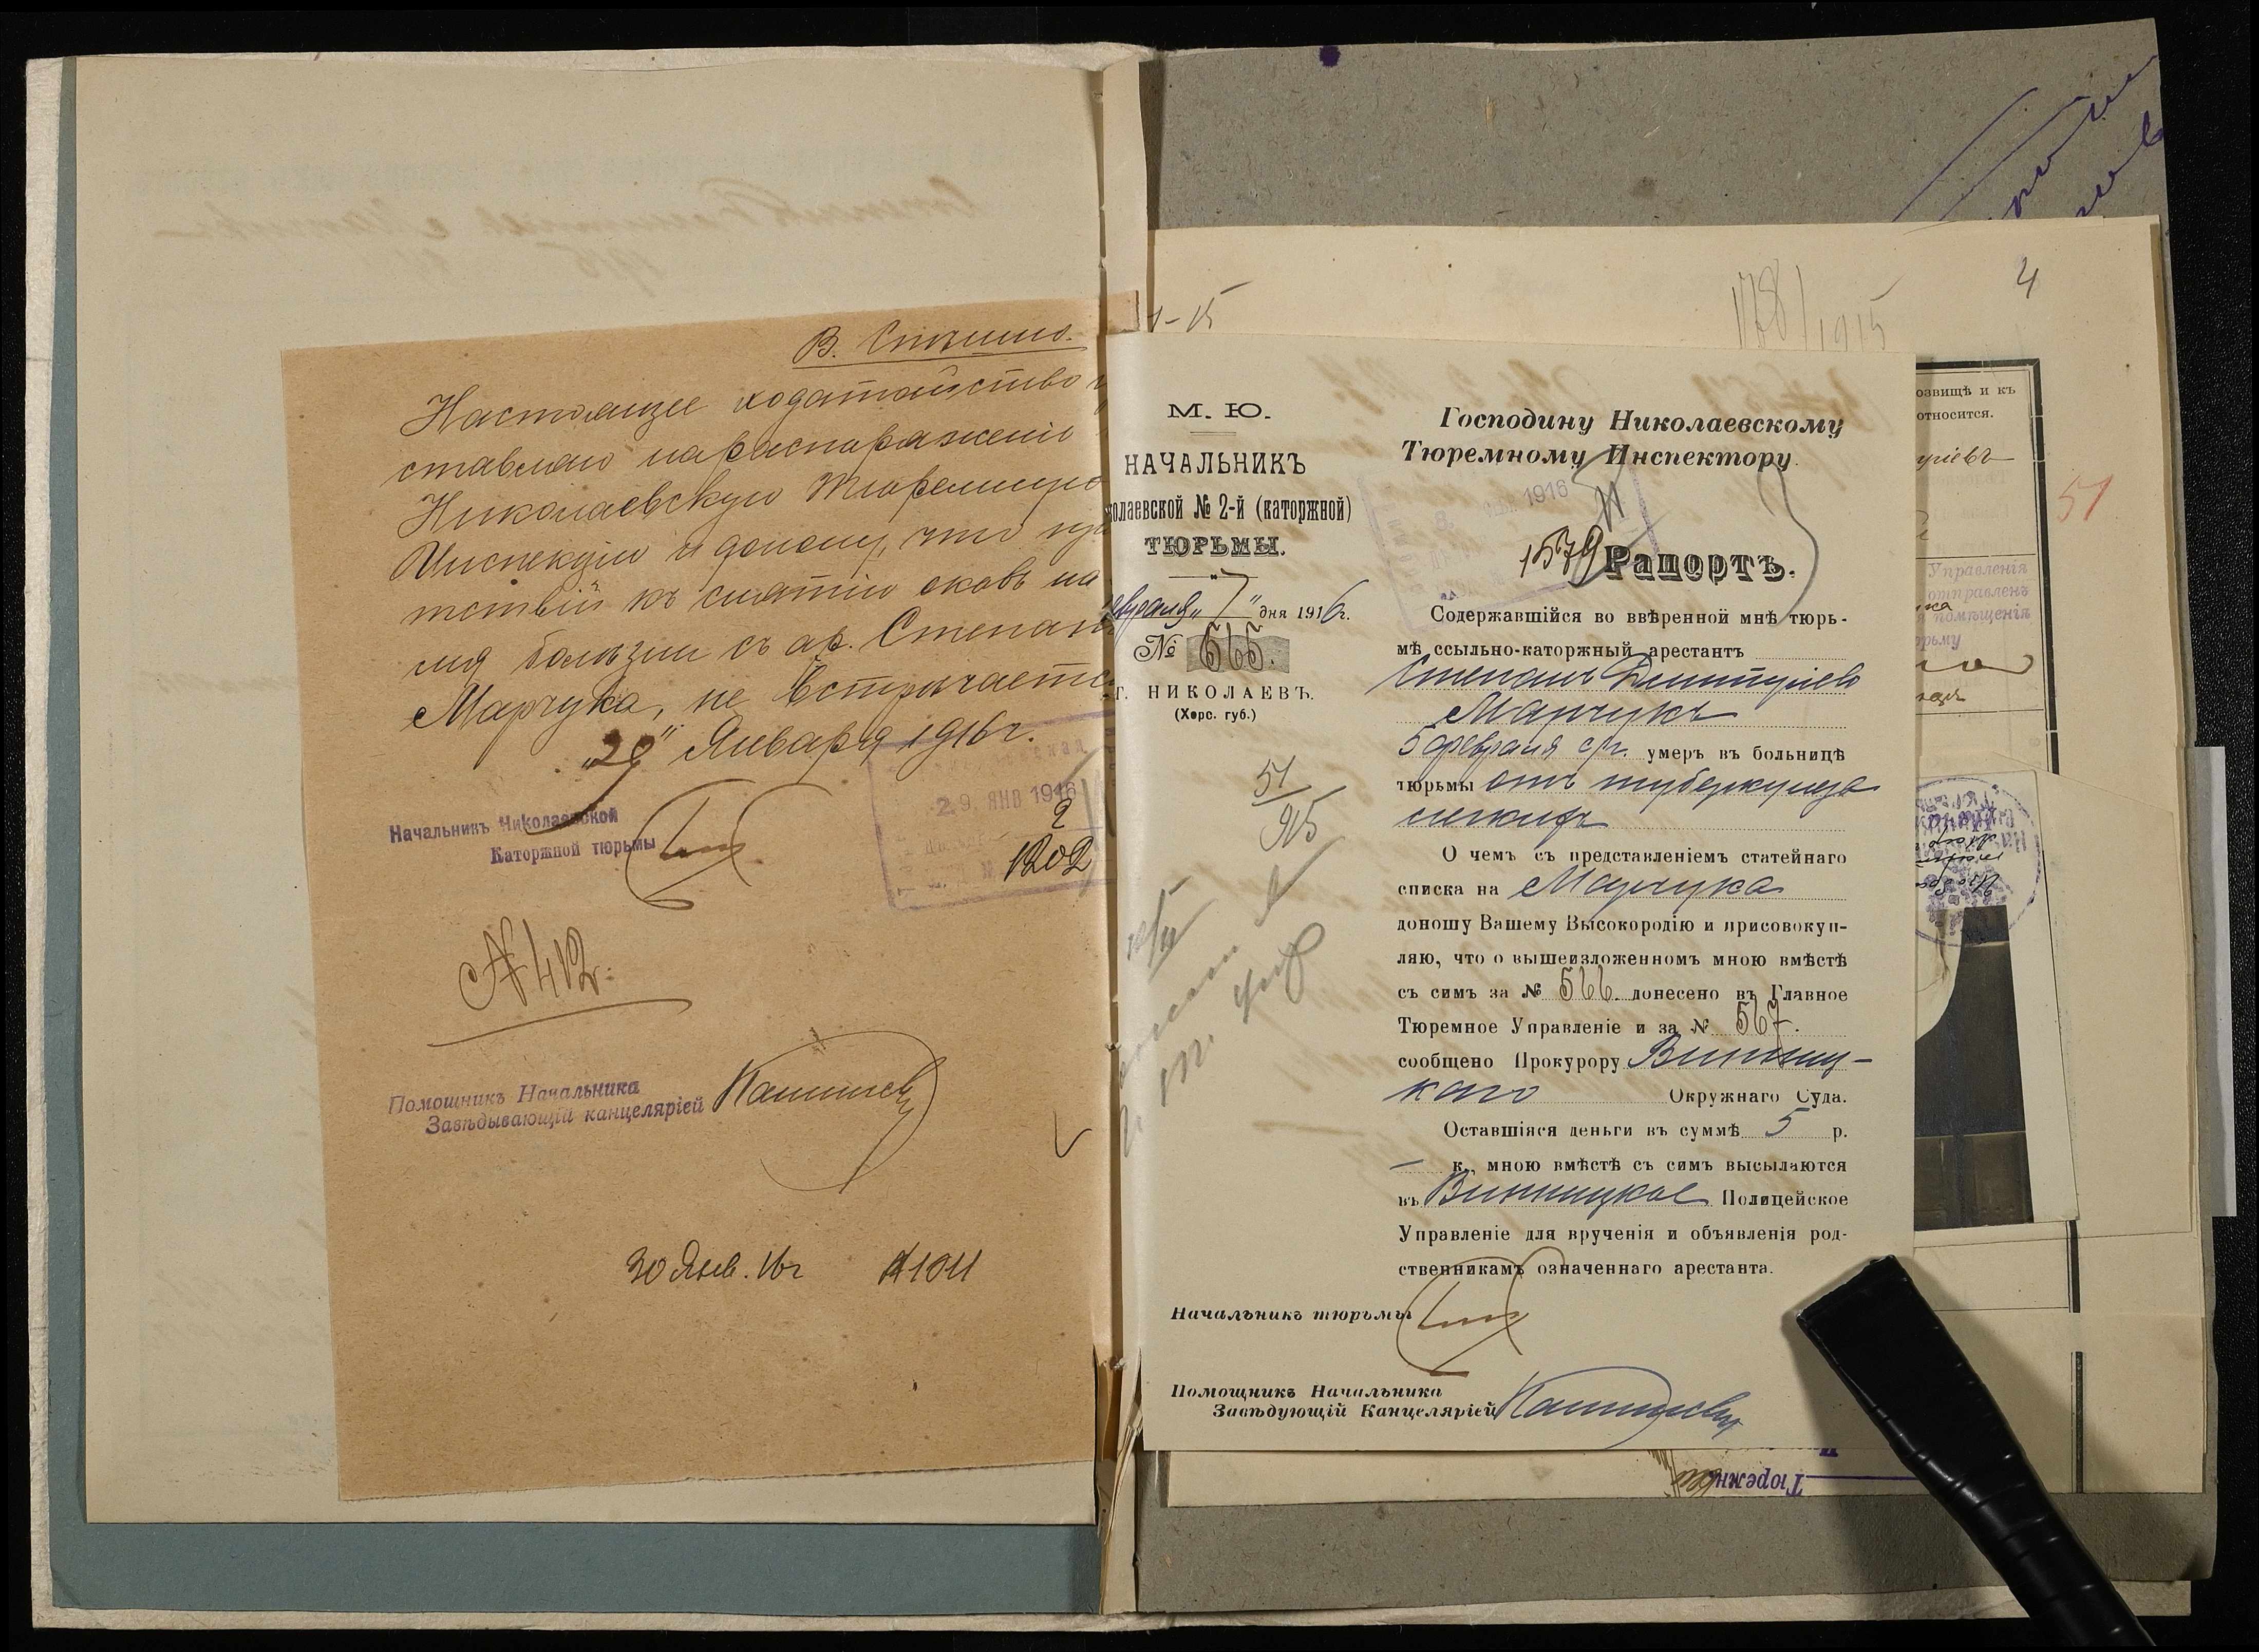 В. Спѣшно.
Настоящее ходатайство
ставляю на распоряженіе
Николаевскую Тюремную
Инспекцію и доношу, что
тствій къ снятію оковъ
болѣзни съ ар. Степан
Марчука, не встрѣчаетс
"29" Января 1916 г.
29. ЯНВ 1916
2
1202
Начальникъ Николаевской
Каторжной тюрьмы
№ 412.
Помощникъ Начальника
Завѣдывающій канцеляріей
30 Янв. 16 г № 1011
178/1915
4
51
М. Ю.
НАЧАЛЬНИКЪ
колаевской № 2-й (каторжной)
ТЮРЬМЫ.
февраля „7" дня 1916 г.
№ 565.
г. НИКОЛАЕВЪ.
(Херс. губ.)
51
915
Господину Николаевскому
Тюремному Инспектору.
1916
1579
Рапортъ.
Содержавшійся во ввѣренной мнѣ тюрь-
мѣ ссыльно-каторжный арестантъ
Степанъ Дмитріевъ
Марчукъ
5 февраля с/г. умеръ въ больницѣ
тюрьмы отъ туберкулеза
легкихъ
О чемъ съ представленіемъ статейнаго
списка на Марчука
доношу Вашему Высокородію и присовокуп-
ляю, что о вышеизложенномъ мною вмѣстѣ
съ симъ за № 566. донесено въ Главное
Тюремное Управленіе и за № 567.
сообщено Прокурору Винниц-
каго Окружнаго Суда.
Оставшіяся деньги въ суммѣ 5 р.
— к., мною вмѣстѣ съ симъ высылаются
въ Винницкое Полицейское
Управленіе для врученія и объявленія род-
ственникамъ означеннаго арестанта.
Начальникъ тюрьмы
Помощникъ Начальника
Завѣдующій Канцеляріей
озвищѣ и къ
относится.
Управленія
отправленъ
помѣщенія
Тюремн